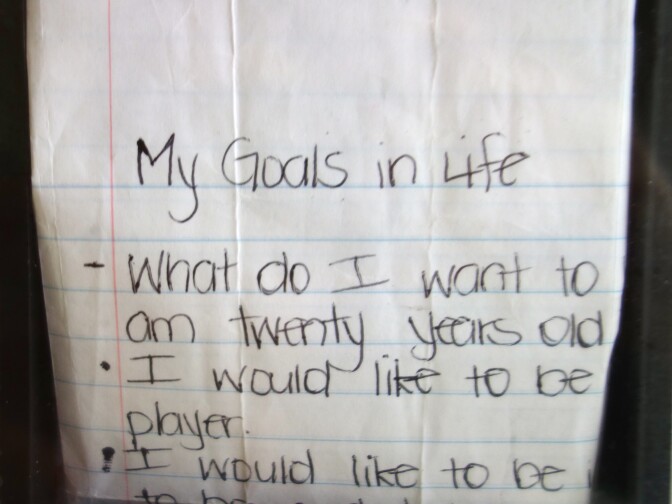 My Goals in Life
- What do I want to
am twenty years old
• I would like to be
player.
• I would like to be
to be